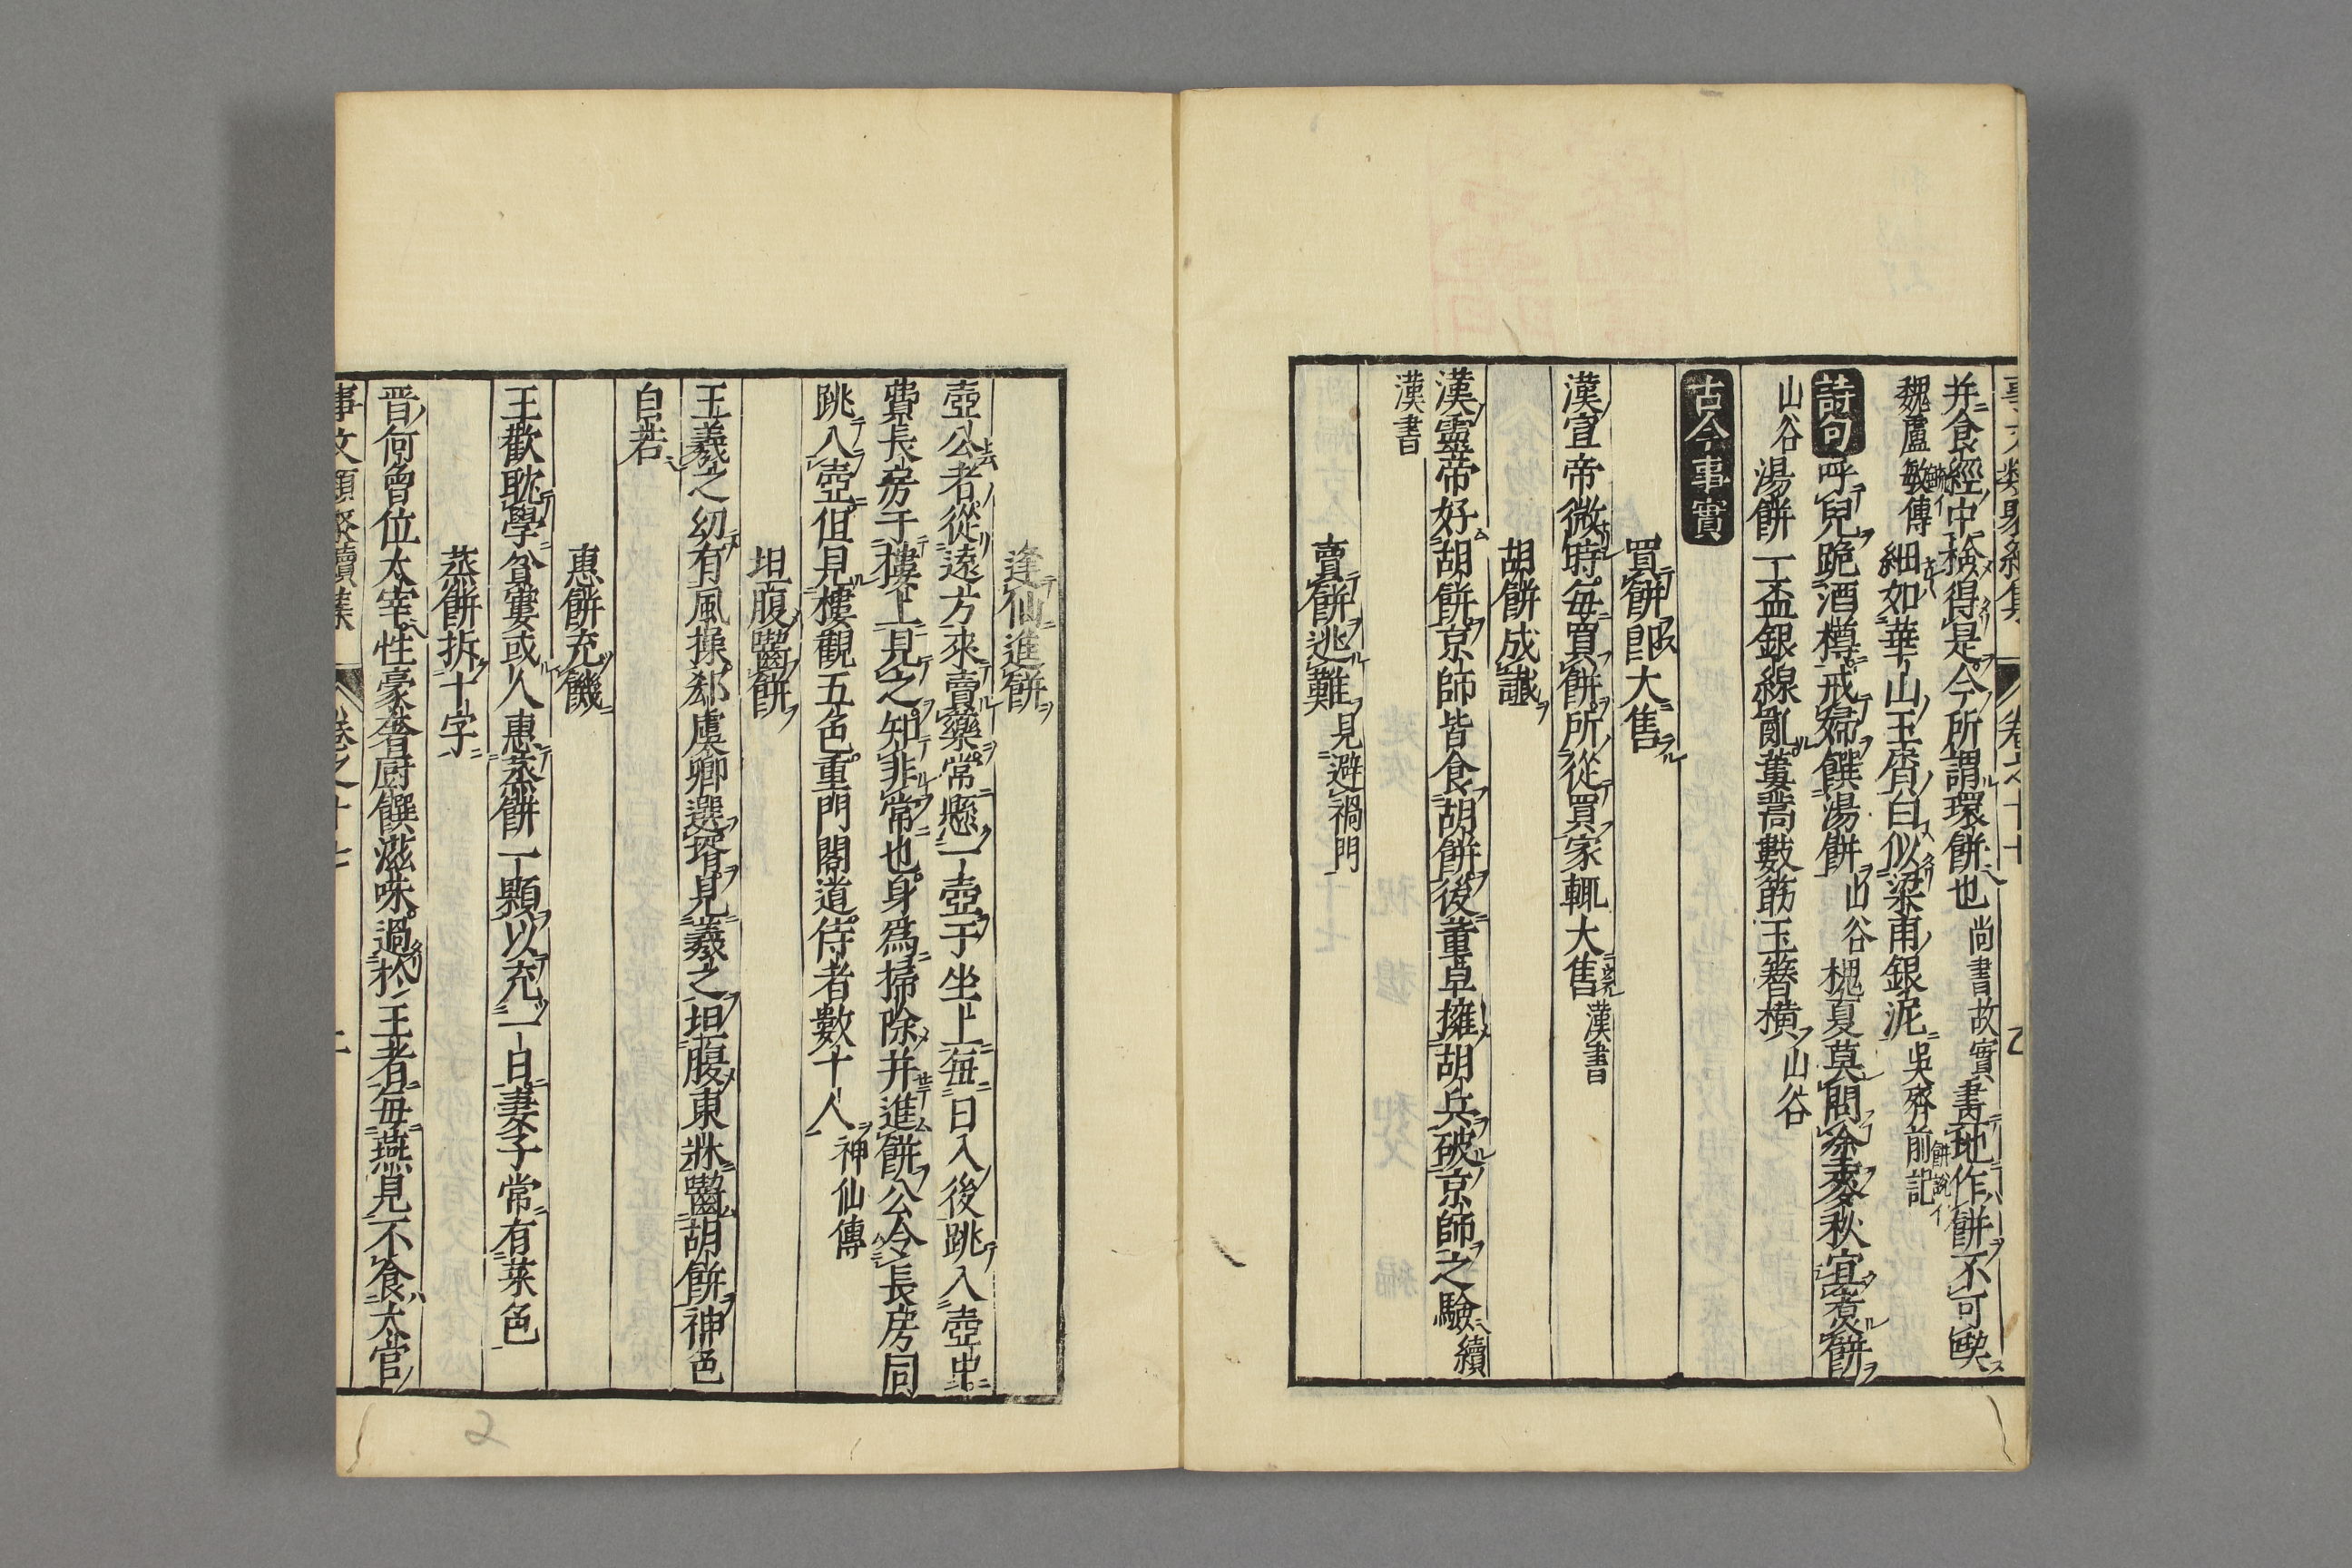 并食經中檢得是今所謂環餅也尚書故實畫地作餅不可啖
魏盧敏傳細如華山玉屑白似梁甫銀泥吳齊前記
詩句呼兒跪酒樽戒婦饌湯餅山谷槐夏莫問余麥秋宜煑餅
山谷湯餅一盃銀線亂蔞蒿數筯玉簪横山谷
古今事實
買餅即大售
漢宣帝微時毎買餅所從買家輒大售漢書
胡餅成讖
漢靈帝好胡餅京師皆食胡餅後董卓擁胡兵破京師之驗續
漢書
賣餅逃難見避禍門
逢仙進餅
壺公者從遠方來賣藥常懸一壺于坐上毎日入後跳入壺中
費長房于樓上見之知非常也身爲掃除并進餅公令長房同
跳入壺但見樓觀五色重門閣道侍者數十人神仙傳
坦腹齧餅
王羲之幼有風操郄虞卿選壻見羲之坦腹東牀齧胡餅神色
自若
惠餅充饑
王歡耽學貧窶或人惠蒸餅一顆以充一日妻子常有菜色
蒸餅拆十字
晉何曾位太宰性豪奢厨饌滋味過於王者毎燕見不食太官
事文類聚續集 卷之十七 二